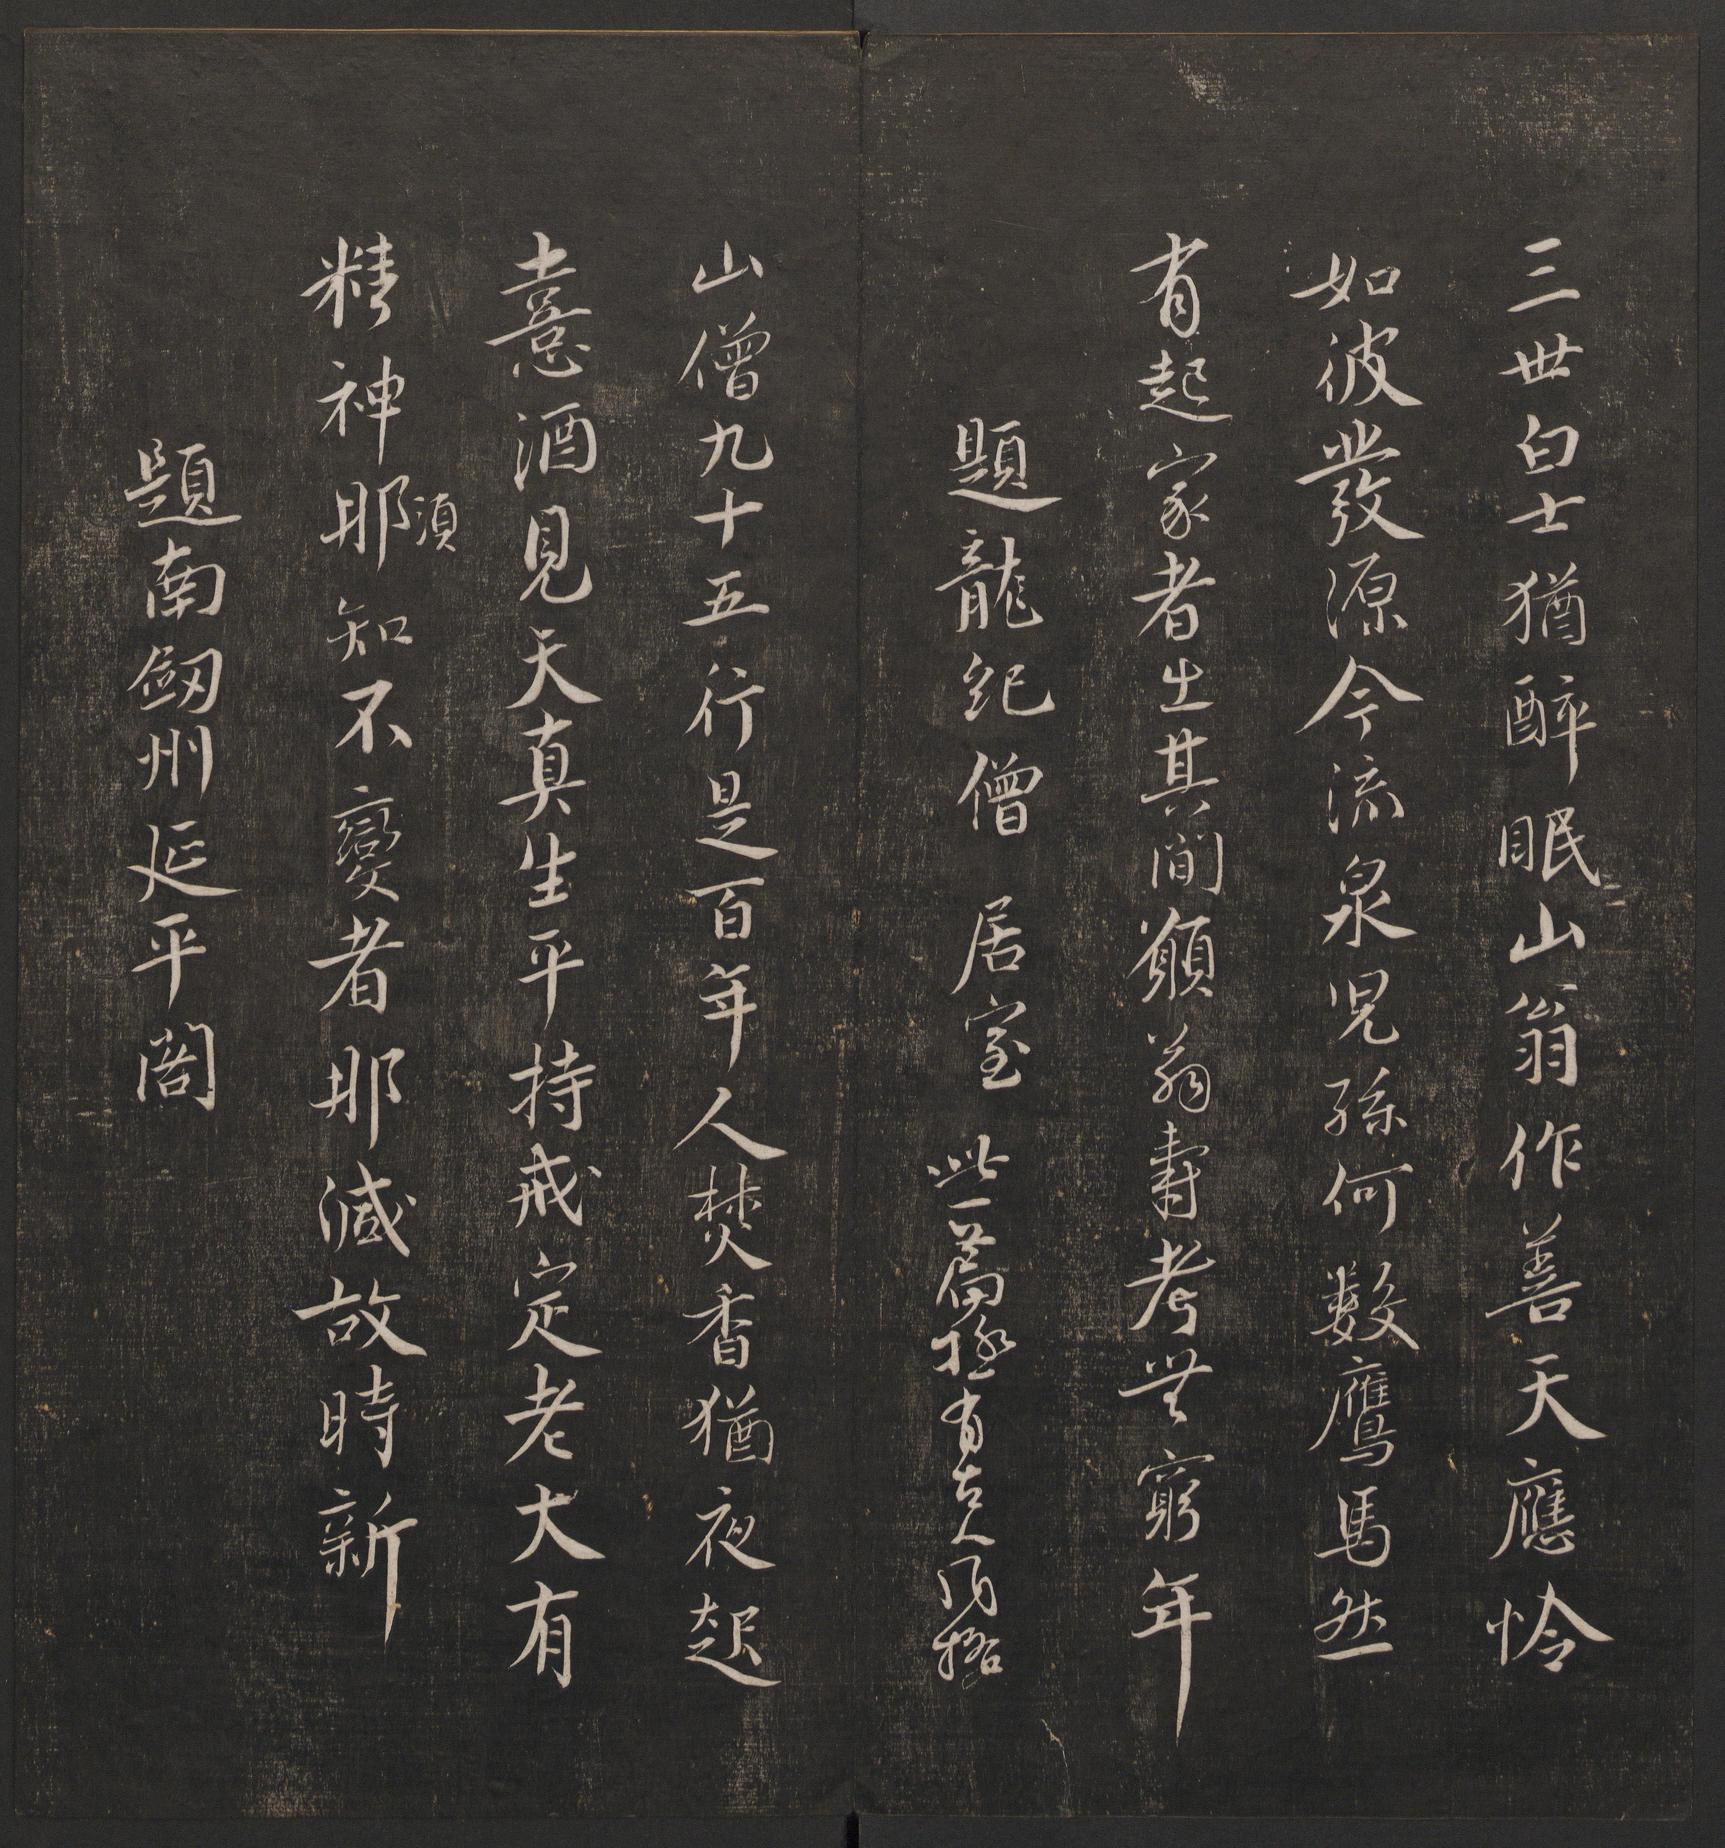 三世白士猶醉眠山翁作善天應憐
如彼發源今流泉兒孫何數鷹馬然
有起家者生其間願翁壽考無窮年
題龍紀僧居室 此一篇極有古人風格
山僧九十五行是百年人焚香猶夜起
憙酒見天真生平持戒定老大有
精神耶須知不變者那減故時新
題南劔州延平閣